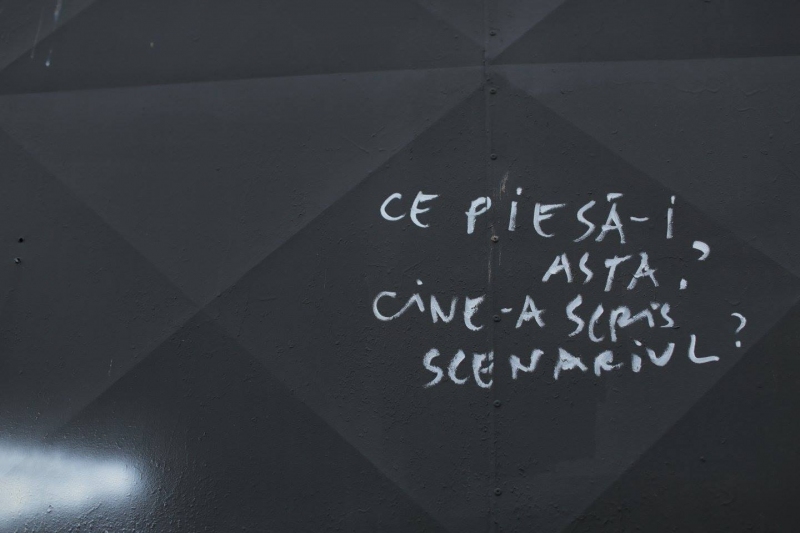 CE PIESĂ-I
ASTA?
CINE-A SCRIS
SCENARIUL?